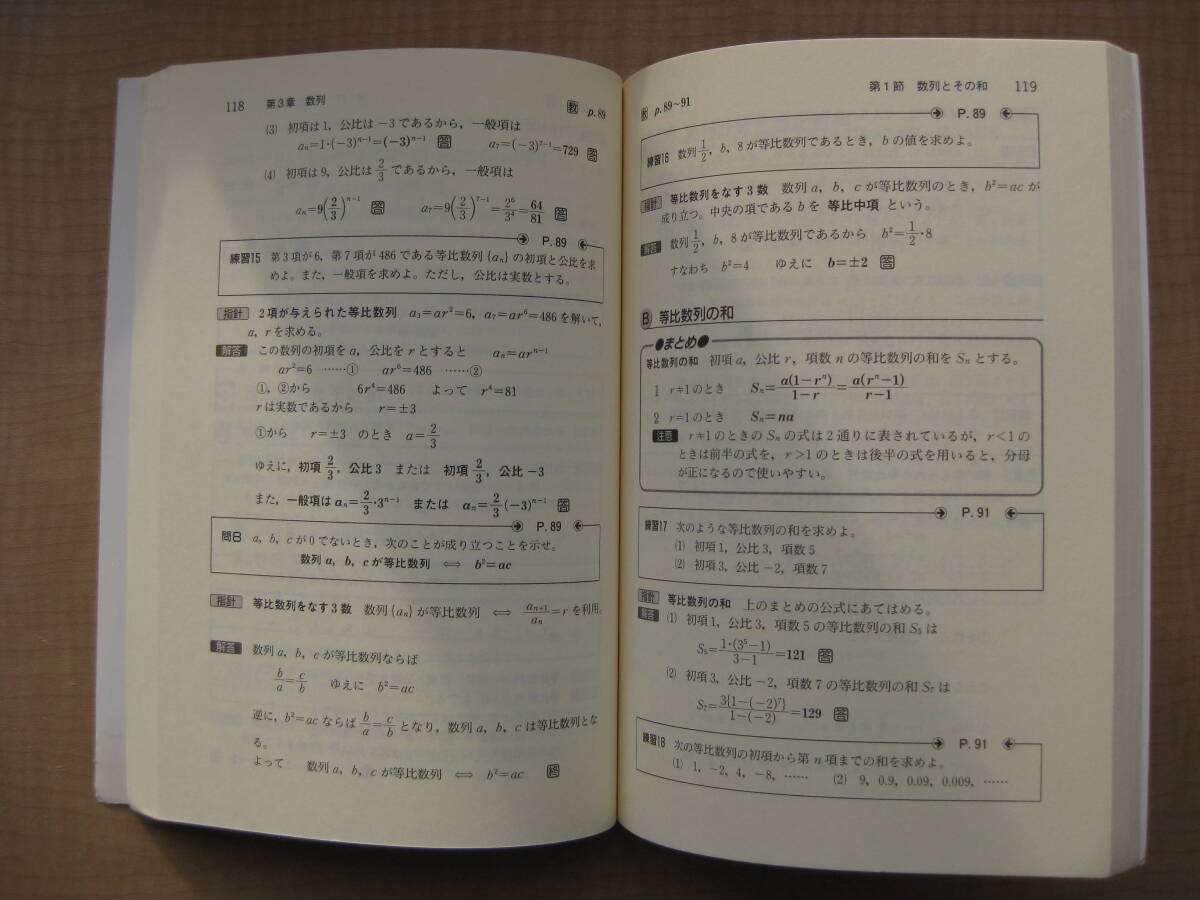 118 第3章 数列
教 p.89
(3) 初項は1，公比は −3 であるから，一般項は
aₙ=1・(−3)ⁿ⁻¹=(−3)ⁿ⁻¹ 答 a₇=(−3)⁷⁻¹=729 答
(4) 初項は9，公比は 2/3 であるから，一般項は
aₙ=9(2/3)ⁿ⁻¹ 答 a₇=9(2/3)⁷⁻¹=2⁶/3⁴=64/81 答
P.89
練習15 第3項が6，第7項が486である等比数列{aₙ}の初項と公比を求
めよ。また，一般項を求めよ。ただし，公比は実数とする。
指針 2項が与えられた等比数列 a₃=ar²=6，a₇=ar⁶=486を解いて，
a，rを求める。
解答 この数列の初項をa，公比をrとすると aₙ=arⁿ⁻¹
ar²=6 ……① ar⁶=486 ……②
①，②から 6r⁴=486 よって r⁴=81
rは実数であるから r=±3
①から r=±3 のとき a=2/3
ゆえに，初項 2/3，公比3 または 初項 2/3，公比 −3
また，一般項は aₙ=2/3・3ⁿ⁻¹ または aₙ=2/3(−3)ⁿ⁻¹ 答
P.89
問8 a，b，cが0でないとき，次のことが成り立つことを示せ。
数列a，b，cが等比数列 ⟺ b²=ac
指針 等比数列をなす3数 数列{aₙ}が等比数列 ⟺ aₙ₊₁/aₙ=r を利用。
解答 数列a，b，cが等比数列ならば
b/a=c/b ゆえに b²=ac
逆に，b²=ac ならば b/a=c/b となり，数列a，b，cは等比数列とな
る。
よって 数列a，b，cが等比数列 ⟺ b²=ac 終
第1節 数列とその和 119
教 p.89〜91
P.89
練習16 数列 1/2，b，8が等比数列であるとき，bの値を求めよ。
指針 等比数列をなす3数 数列a，b，cが等比数列のとき，b²=ac が
成り立つ。中央の項であるbを 等比中項 という。
解答 数列 1/2，b，8が等比数列であるから b²=1/2・8
すなわち b²=4 ゆえに b=±2 答
B 等比数列の和
●まとめ●
等比数列の和 初項a，公比r，項数nの等比数列の和をSₙとする。
1 r≠1のとき Sₙ=a(1−rⁿ)/1−r=a(rⁿ−1)/r−1
2 r=1のとき Sₙ=na
注意 r≠1のときのSₙの式は2通りに表されているが，r<1の
ときは前半の式を，r>1のときは後半の式を用いると，分母
が正になるので使いやすい。
P.91
練習17 次のような等比数列の和を求めよ。
(1) 初項1，公比3，項数5
(2) 初項3，公比−2，項数7
指針 等比数列の和 上のまとめの公式にあてはめる。
解答 (1) 初項1，公比3，項数5の等比数列の和S₅は
S₅=1・(3⁵−1)/3−1=121 答
(2) 初項3，公比−2，項数7の等比数列の和S₇は
S₇=3{1−(−2)⁷}/1−(−2)=129 答
P.91
練習18 次の等比数列の初項から第n項までの和を求めよ。
(1) 1，−2，4，−8，…… (2) 9，0.9，0.09，0.009，……